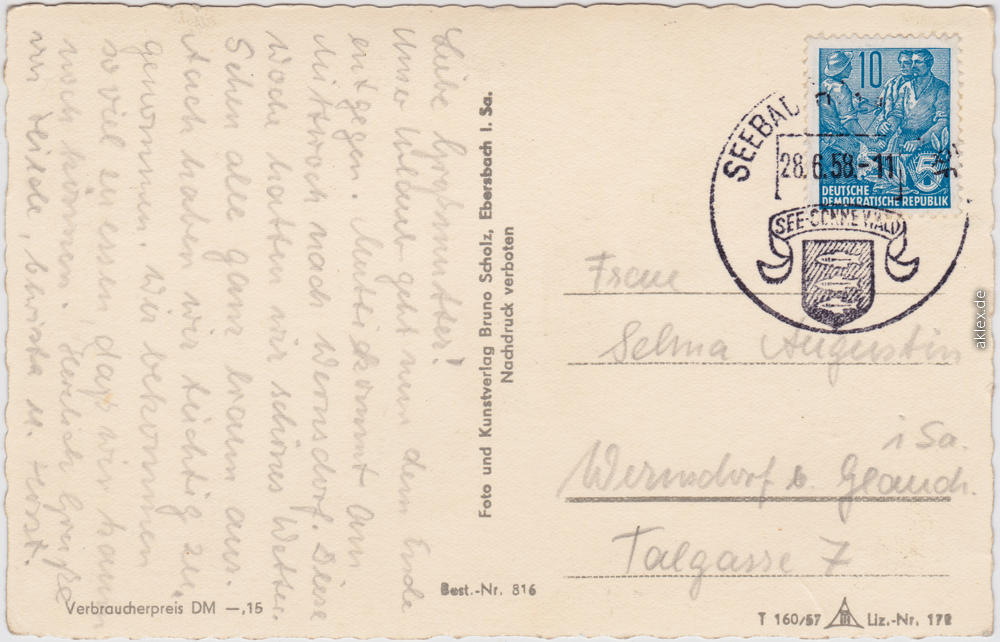 Liebe Großmutter!
Unser Urlaub geht nun dem Ende
entgegen. Mutti kommt am
Mittwoch nach Wernsdorf. Diese
Woche hatten wir schönes Wetter.
Sehen alle ganz braun aus.
Auch haben wir tüchtig zu-
genommen. Wir bekommen
so viel zu essen, daß wir kaum
noch können. Herzlich grüßt
Foto und Kunstverlag Bruno Scholz, Ebersbach i. Sa.
Nachdruck verboten
Verbraucherpreis DM —,15
Best.-Nr. 816
10
DEUTSCHE
DEMOKRATISCHE REPUBLIK
5
SEEBAD
28.6.58.-11
SEE-SONNE WALD
Frau
Selma Augustin
i Sa.
Wernsdorf b. Glauch.
Talgasse 7
T 160/57 Liz.-Nr. 172
aklex.de